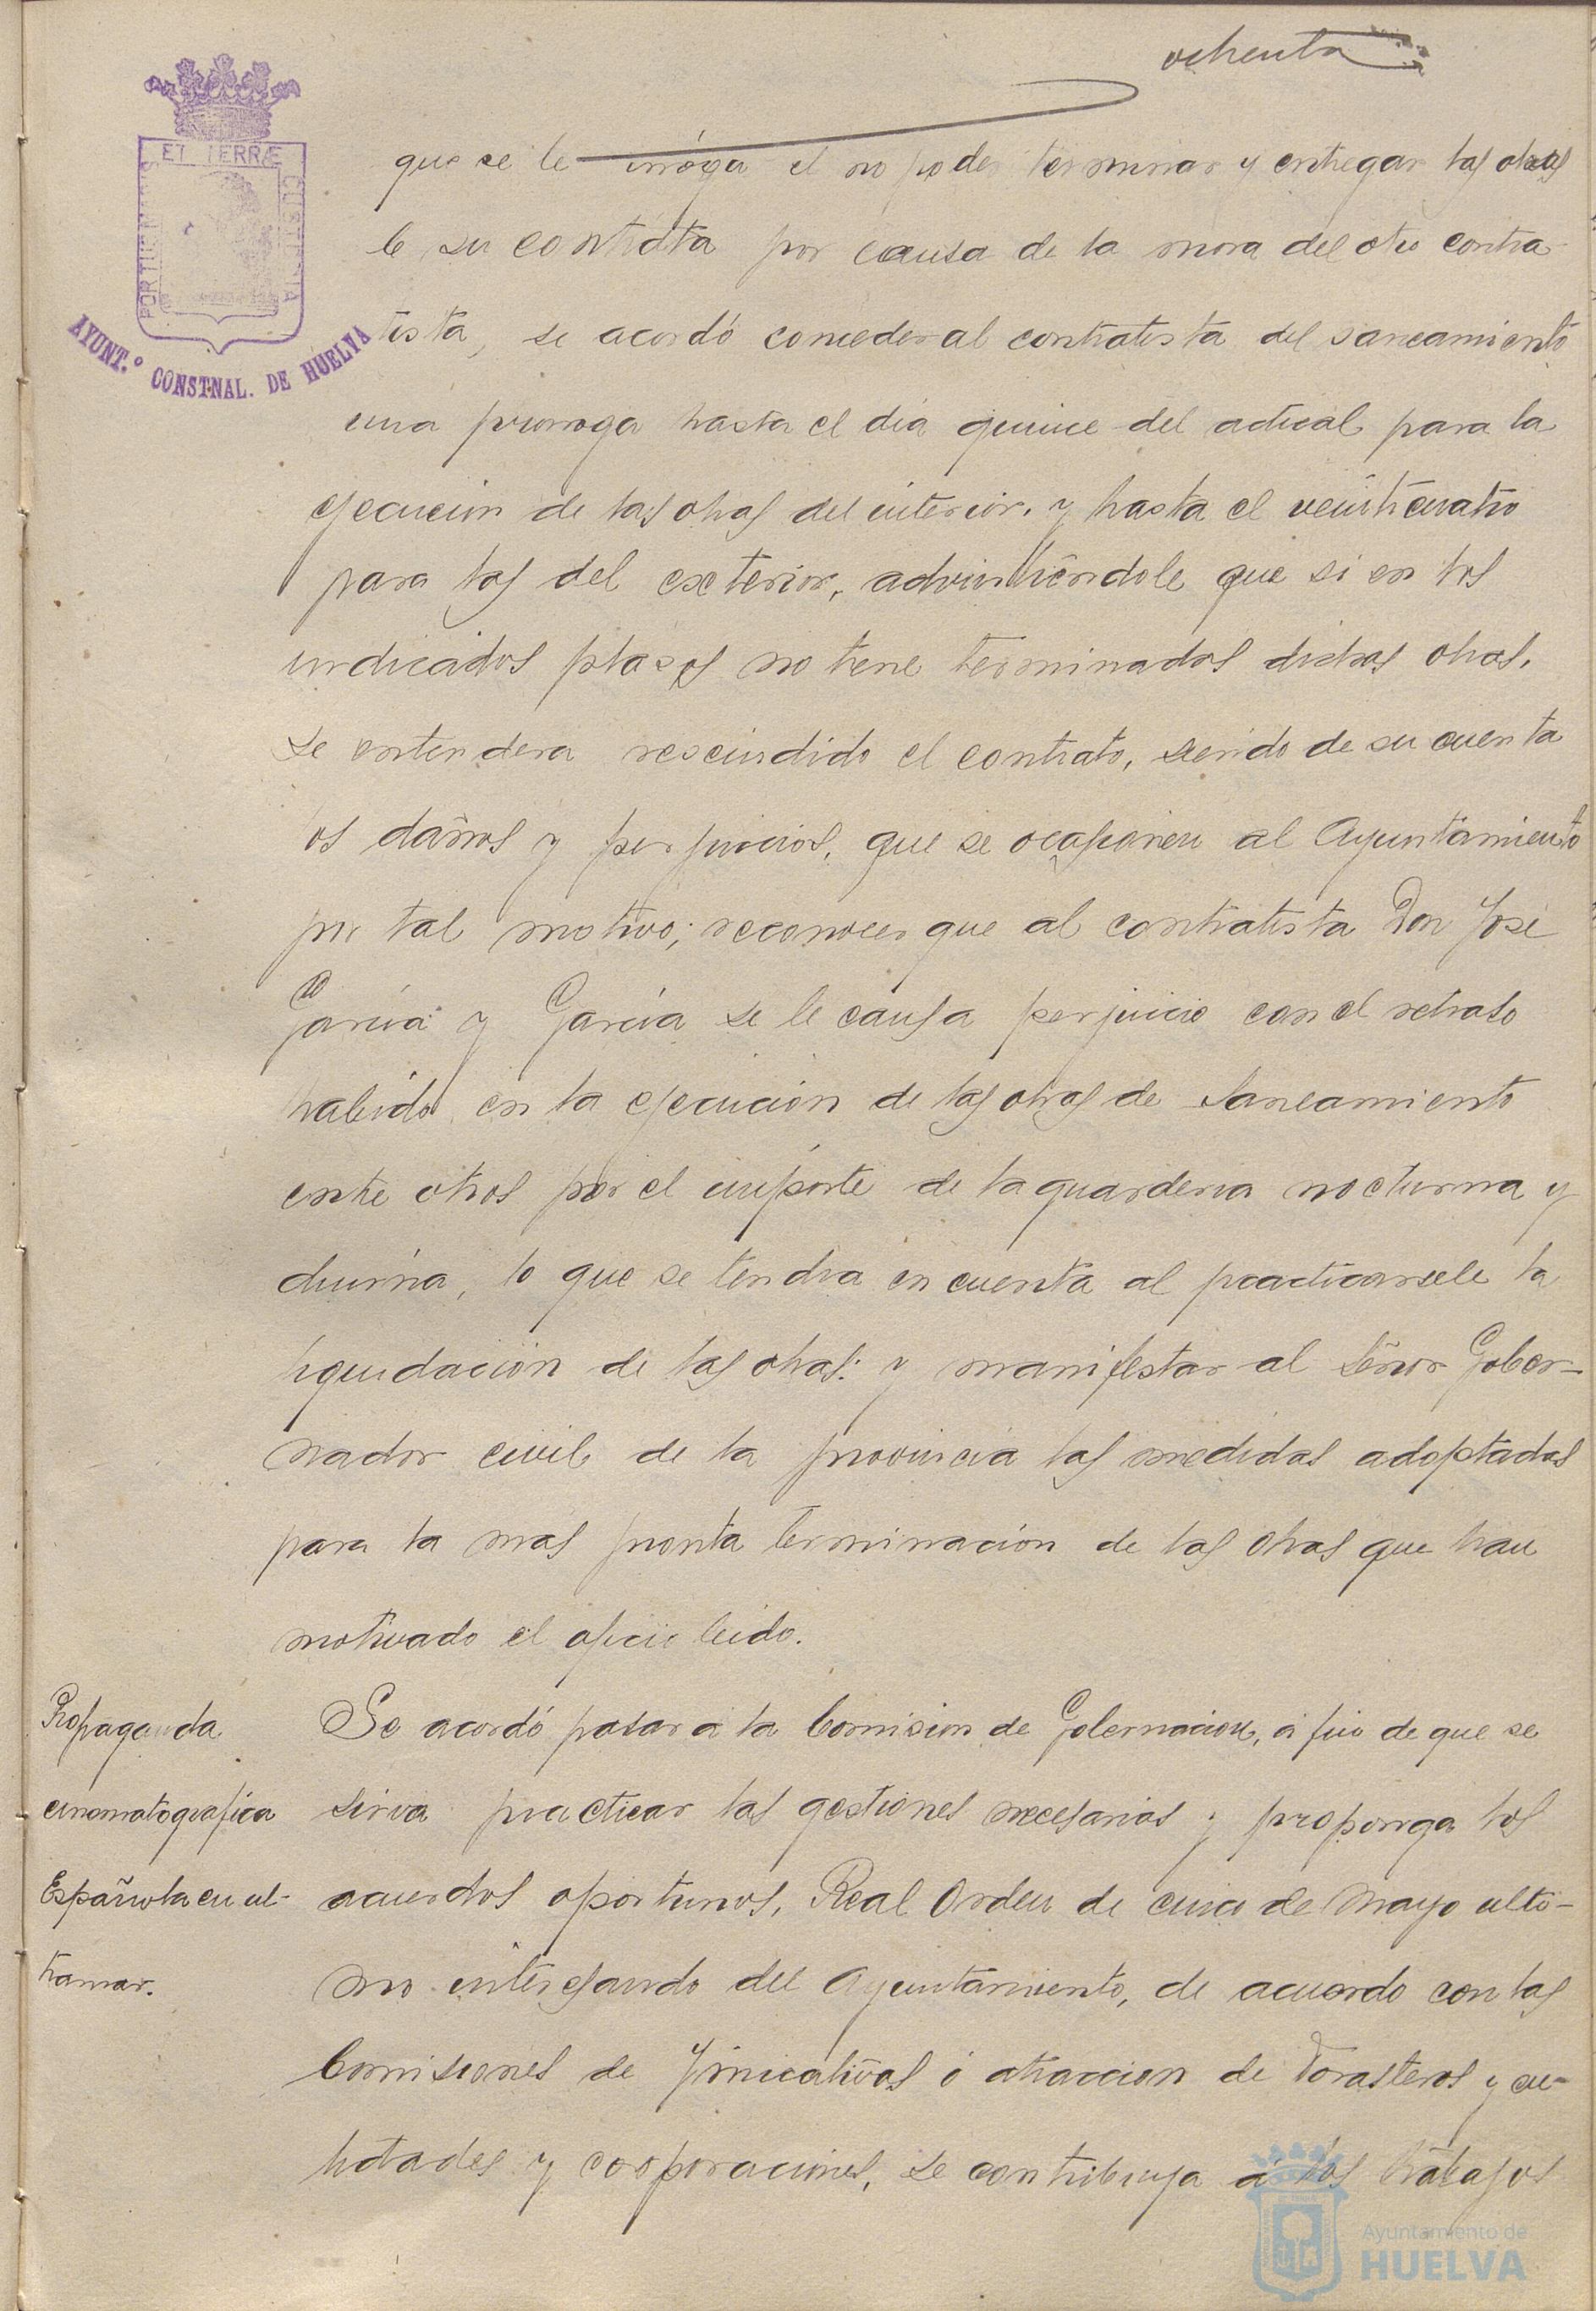 ochenta
ET TERRÆ
PORTUS MARIS
CUSTODIA
AYUNT.º CONSTNAL. DE HUELVA
que se le irróga el no poder terminar y entregar las obras
de su contrata por causa de la mora del otro contra-
tista, se acordó conceder al contratista del saneamiento
una prorroga hasta el dia quince del actual para la
ejecución de las obras del interior, y hasta el veinticuatro
para las del exterior, advirtiéndole que si en los
indicados plasos no tiene terminados dichas obras,
se entendera rescindido el contrato, siendo de su cuenta
los daños y perjuicios, que se ocasionen al Ayuntamiento
por tal motivo; reconocer que al contratista Don José
García y García se le causa perjuicio con el retraso
habido en la ejecución de las obras de Saneamiento
entre otros por el importe de la guarderia nocturna y
diurna, lo que se tendra en cuenta al practicarsele la
liquidación de las obras: y manifestar al Señor Gober-
nador civil de la provincia las medidas adoptadas
para la mas pronta terminación de las obras que han
motivado el oficio leido.
Propaganda
cinematografica
Española en ul-
tramar.
Se acordó pasar a la Comision de Gobernacion, á fin de que se
sirva practicar las gestiones necesarias y proponga los
acuerdos oportunos, Real Orden de cinco de Mayo ulti-
mo interesando del Ayuntamiento, de acuerdo con las
Comisiones de Yniciativas ó atraccion de Forasteros y en-
tidades y corporaciones, se contribuya á los trabajos
Ayuntamiento de
HUELVA